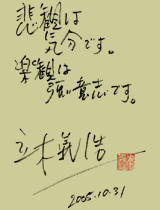 悲観は
気分です。
楽観は
強い意志です。
立木義浩
2005.10.31